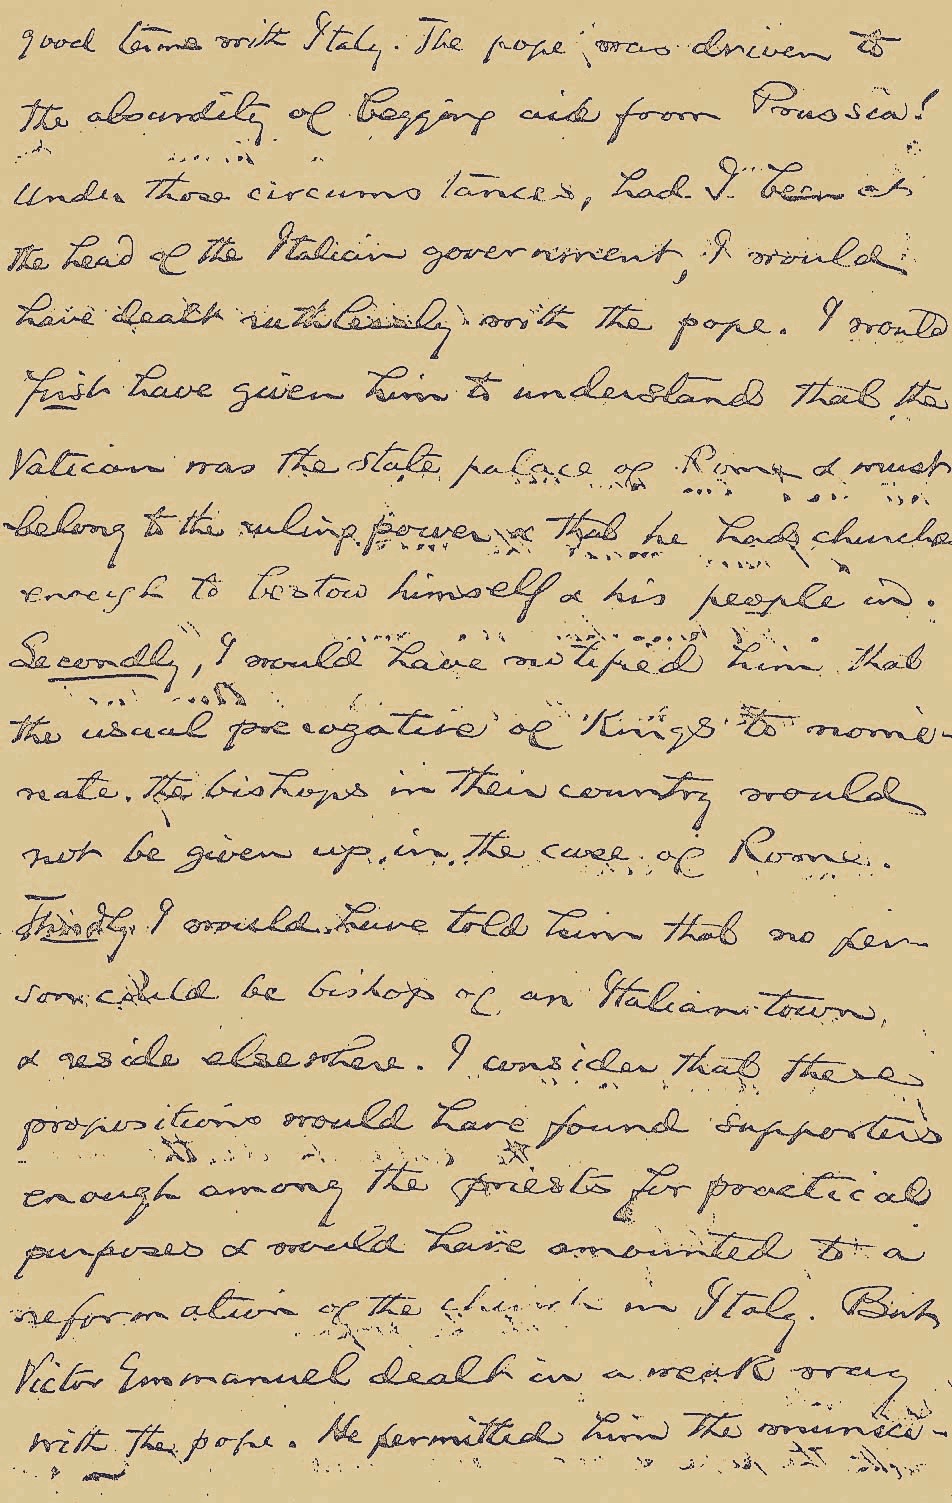 good terms with Italy. The pope was driven to
the absurdity of begging aid from Prussia!
Under those circumstances, had I been at
the head of the Italian government, I would
have dealt ruthlessly with the pope. I would
first have given him to understand that the
Vatican was the state palace of Rome & must
belong to the ruling power & that he had churches
enough to bestow himself & his people in.
Secondly, I would have notified him that
the usual prerogative of Kings to nomi-
nate the bishops in their country would
not be given up in the case of Rome.
Thirdly I would have told him that no per-
son could be bishop of an Italian town,
& reside elsewhere. I consider that these
propositions would have found supporters
enough among the priests for practical
purposes & would have amounted to a
reformation of the church in Italy. But
Victor Emmanuel dealt in a weak way
with the pope. He permitted him the munici-